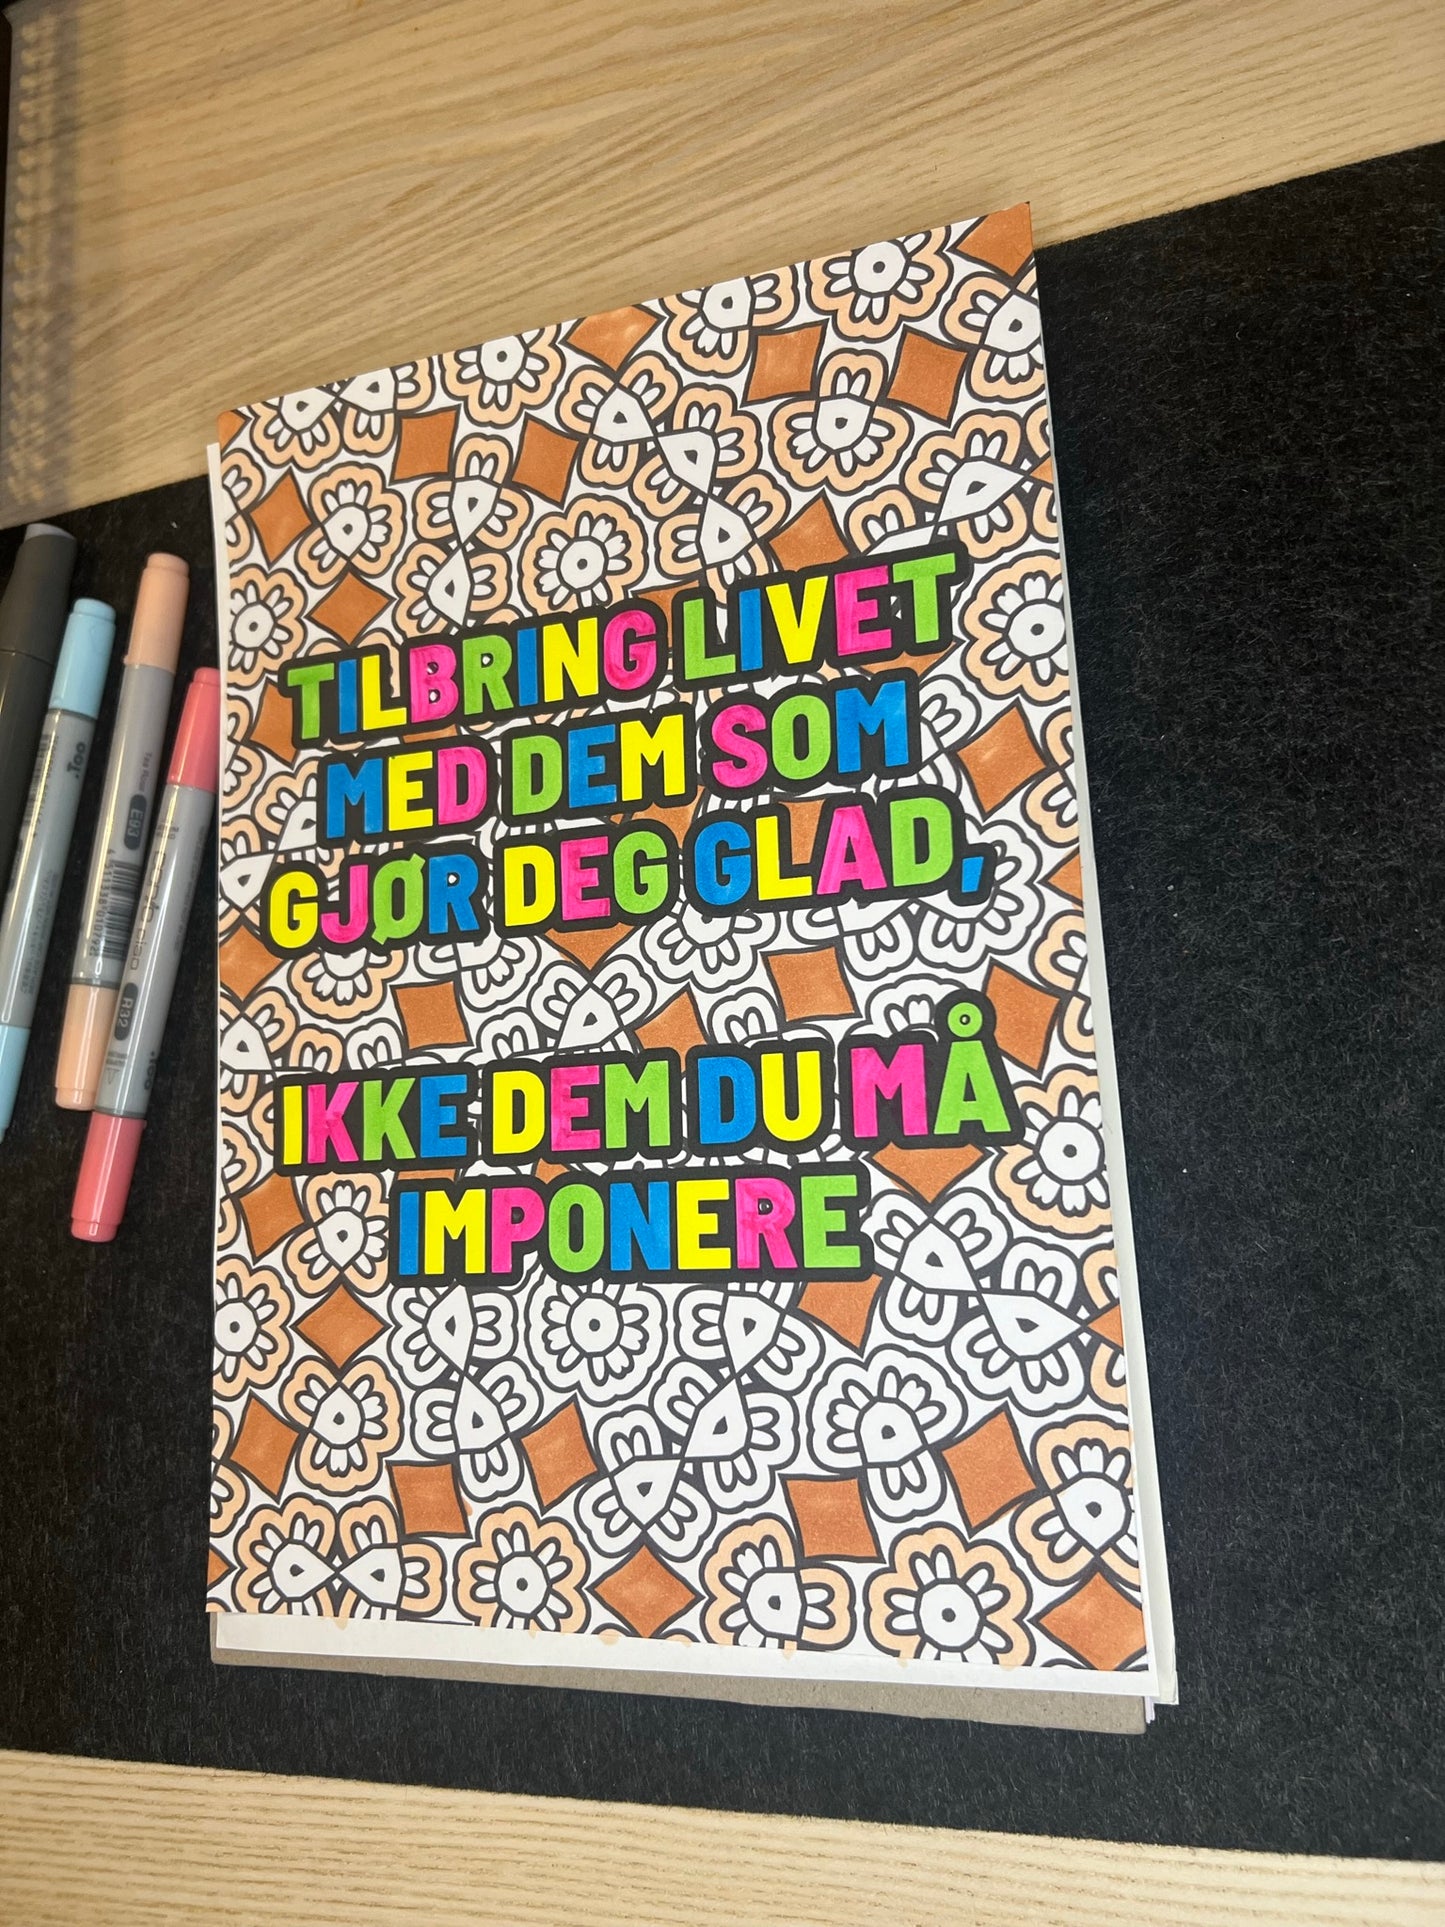 TILBRING LIVET
MED DEM SOM
GJØR DEG GLAD,
IKKE DEM DU MÅ
IMPONERE
.Too
E93
R32